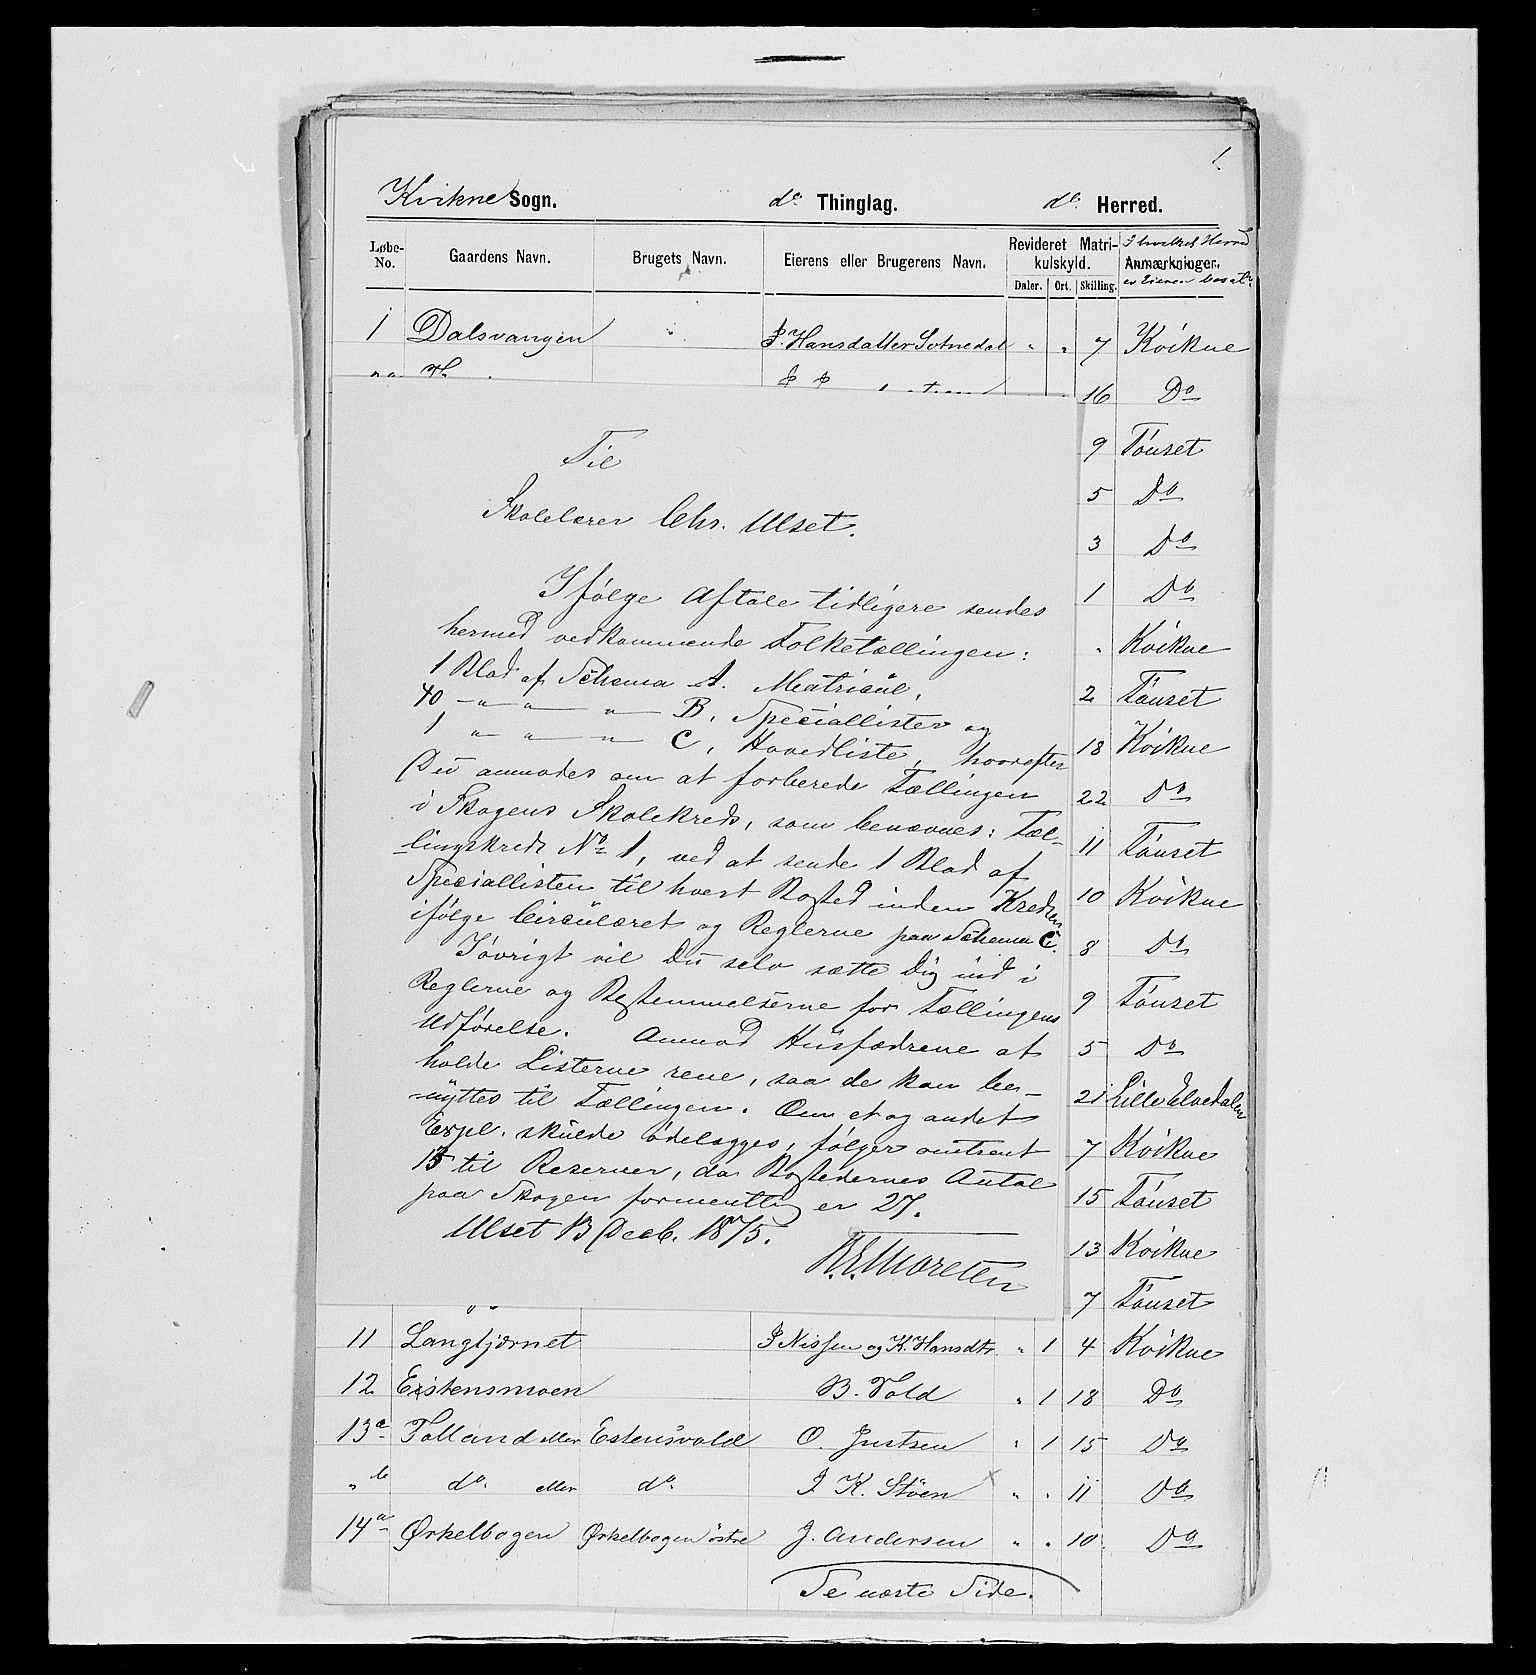 1.
Kvikne Sogn. do. Thinglag. do. Herred.
Løbe-No. Gaardens Navn. Brugets Navn. Eierens eller Brugerens Navn. Revideret Matrikulskyld. Daler. Ort. Skilling. Anmærkninger. I hvilket Herred er Eieren bosat.
1 Dalsvangen P. Hansdatter Sotnedal " " 7 Kvikne
16 Do
9 Tönset
5 Do
3 Do
1 Do
" Kvikne
2 Tönset
18 Kvikne
22 Do
11 Tönset
10 Kvikne
8 Do
9 Tönset
5 Do
21 Lille Elvedalen
7 Kvikne
15 Tönset
13 Kvikne
7 Tönset
Til
Skolelærer Chr. Ulset.
Ifølge Aftale tidligere sendes
hermed vedkommende Folketællingen:
1 Blad af Schema A. Matricul,
40 " " " B, Speciallister og
1 " " " C, Hovedliste, hvorefter
Du anmodes om at forberede Tællingen
i Skogens Skolekreds, som benævnes: Tæl-
lingskreds No 1, ved at sende 1 Blad af
Speciallisten til hvert Bosted inden Kredsen
ifølge Circulæret og Reglerne paa Schema C.
Iøvrigt vil Du selv sætte Dig ind i
Reglerne og Bestemmelserne for Tællingens
Udførelse. Anmod Husfædrene at
holde Listerne rene, saa de kan be-
nyttes til Tællingen. Om et og andet
Expl. skulde ødelægges, følger omtrent
13 til Reserver, da Bostedernes Antal
paa Skogen formentlig er 27.
Ulset 13 Decb. 1875.
11 Langtjærnet P Nissen og K. Hansdtr. " 1 4 Kvikne
12 Eistensmoen B. Vold " 1 18 Do
13a Folland eller Estensvold O. Justsen " 1 15 Do
" b do. eller do. I K. Stöen " " 11 Do
14a Ørkelbogen Ørkelbogen östre J. Andersen " " 10 Do
Se næste Side.